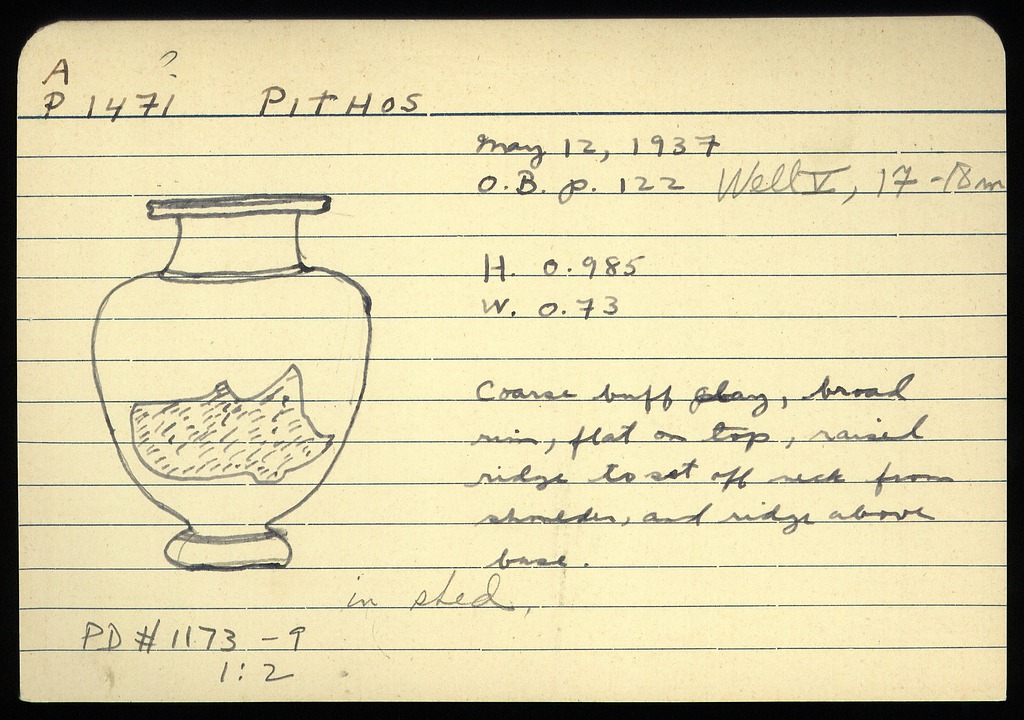 A ?
P 1471 PITHOS
May 12, 1937
O.B. p. 122 Well V, 17-18m
H. 0.985
W. 0.73
Coarse buff clay, broad
rim, flat on top, raised
ridge to set off neck from
shoulder, and ridge above
base.
in shed,
PD # 1173 - 9
1:2